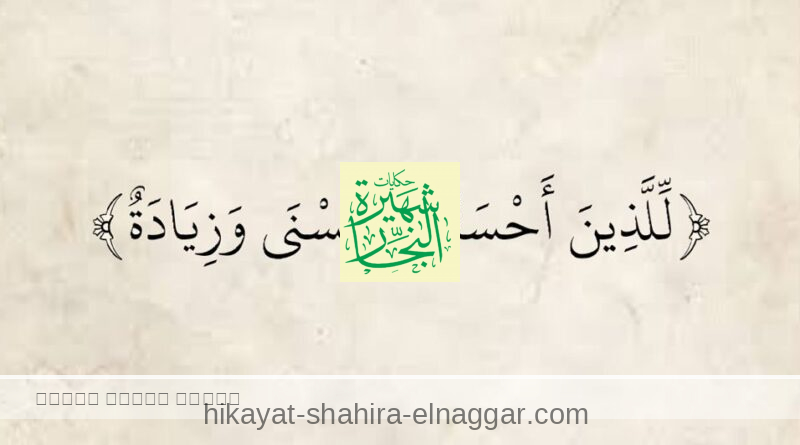 ﴿لِّلَّذِينَ أَحْسَـ ـسْنَى وَزِيَادَةٌ﴾
حكايات
شهيرة
النجار
hikayat-shahira-elnaggar.com